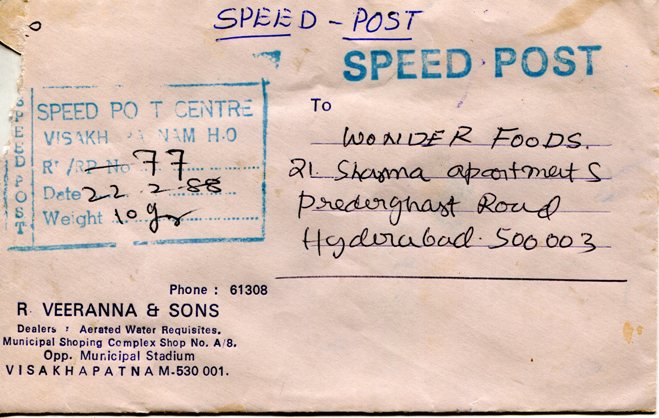 SPEED - POST
SPEED POST
SPEED POST
SPEED PO T CENTRE
VISAKH PA NAM H.O
R /RP No 77
Date 22.2.88
Weight 10 gr
To
WONDER FOODS.
21. Sharma apartments
Prederghast Road
Hyderabad. 500003
Phone : 61308
R. VEERANNA & SONS
Dealers : Aerated Water Requisites.
Municipal Shoping Complex Shop No. A/8.
Opp. Municipal Stadium
VISAKHAPATNAM-530 001.